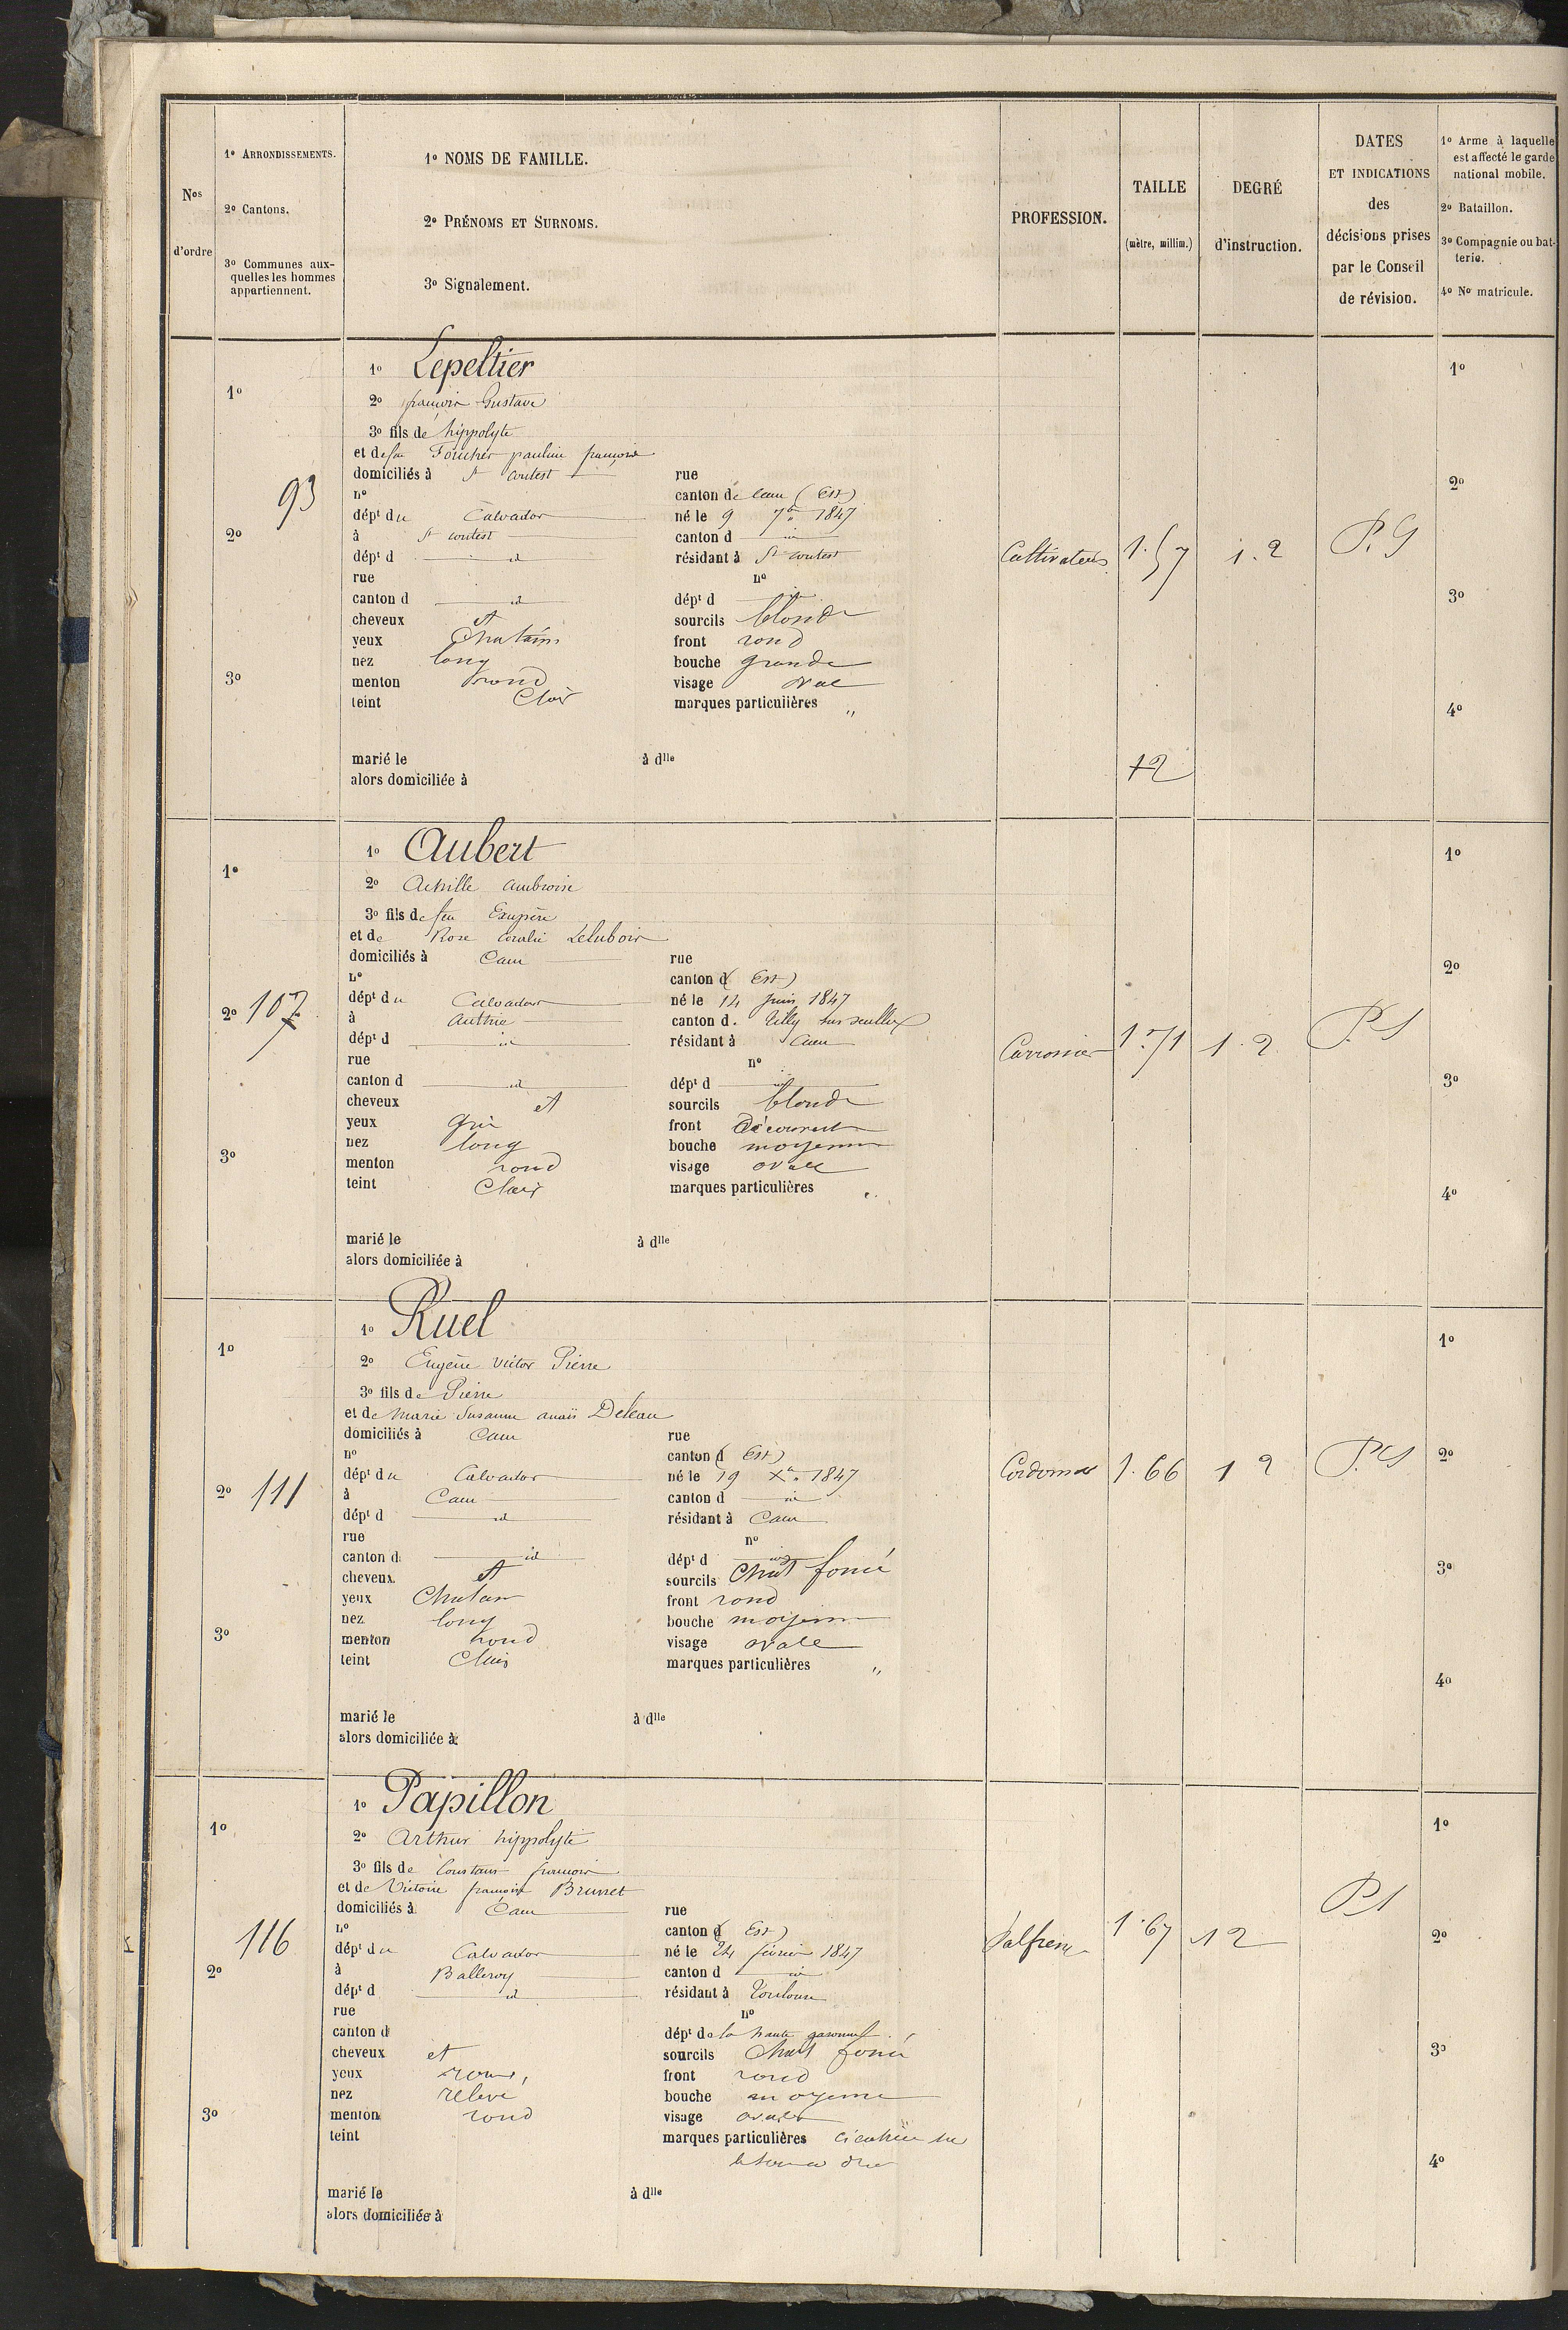 Nos d'ordre
1º ARRONDISSEMENTS.
2º Cantons.
3º Communes aux-
quelles les hommes
appartiennent.
1º NOMS DE FAMILLE.
2º PRÉNOMS ET SURNOMS.
3º Signalement.
PROFESSION.
TAILLE
(mètre, millim.)
DEGRÉ
d'instruction.
DATES
ET INDICATIONS
des
décisions prises
par le Conseil
de révision.
1º Arme à laquelle
est affecté le garde
national mobile.
2º Bataillon.
3º Compagnie ou bat-
terie.
4º No matricule.
93
1º
2º
3º
1º Lepeltier
2º françois Gustave
3º fils de hippolyte
et de feu Foucher pauline françoise
domiciliés à St contest rue
nº canton de Caen (Est)
dépt du Calvados né le 9 7bre 1847
à St contest canton d id
dépt d id résidant à St contest
rue nº
canton d id dépt d id
cheveux et sourcils blonds
yeux Chatains front rond
nez long bouche grande
menton rond visage oval
teint Clair marques particulières "
marié le à dlle
alors domiciliée à
Cultivateur
1.57
1.2
12
1º
2º
3º
4º
107
1º
2º
3º
1º Aubert
2º Achille ambroise
3º fils de feu Exupère
et de Rose Coralie
domiciliés à Caen rue
nº canton d (Est)
dépt du Calvados né le 14 juin 1847
à Authie canton d. Tilly sur seulles
dépt d id résidant à Caen
rue nº
canton d id dépt d id
cheveux et sourcils blonds
yeux gris front découvert
nez long bouche moyenne
menton rond visage ovale
teint Clair marques particulières "
marié le à dlle
alors domiciliée à
Carrossier
1.71
1.2
P.S
1º
2º
3º
4º
111
1º
2º
3º
1º Ruel
2º Eugène victor Pierre
3º fils de Pierre
et de Marie Susanne anaïs Deleau
domiciliés à Caen rue
nº canton d (Est)
dépt du Calvados né le 19 Xbre 1847
à Caen canton d id
dépt d id résidant à Caen
rue nº
canton d id dépt d id
cheveux et sourcils Chat foncé
yeux Chatain front rond
nez long bouche moyenne
menton rond visage ovale
teint Clair marques particulières "
marié le à dlle
alors domiciliée à
Cordonnier
1.66
1 2
P.S
1º
2º
3º
4º
116
1º
2º
3º
1º Papillon
2º Arthur hippolyte
3º fils de Constant françois
et de Victoire françoise Brunet
domiciliés à Caen rue
nº canton d (Est)
dépt du Calvados né le 24 février 1847
à Balleroy canton d id
dépt d id résidant à Toulouse
rue nº
canton d dépt de la haute garonne
cheveux et sourcils Chat foncé
yeux roux, front rond
nez relevé bouche moyenne
menton rond visage ovale
teint marques particulières cicatrice sur
marié le à dlle
alors domiciliée à
Palfrenier
1.67
12
PS
1º
2º
3º
4º